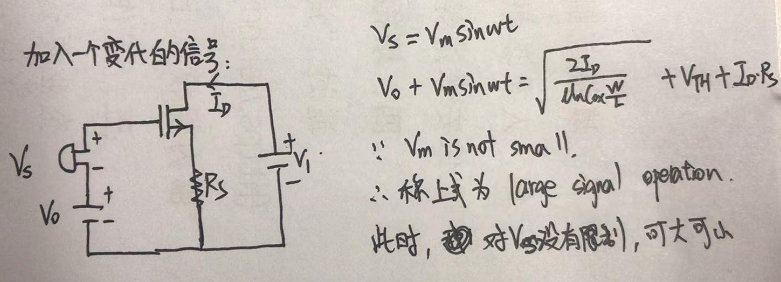 加入一个变化的信号:
I_D
V_s
+
-
V_0
+
-
R_s
+
V_1
-
V_s = V_m sinωt
V_0 + V_m sinωt = √(2I_D / (μ_n C_ox W/L)) + V_TH + I_D·R_s
∵ V_m is not small.
∴ 称上式为 large signal operation.
此时, 对V_s没有限制, 可大可小